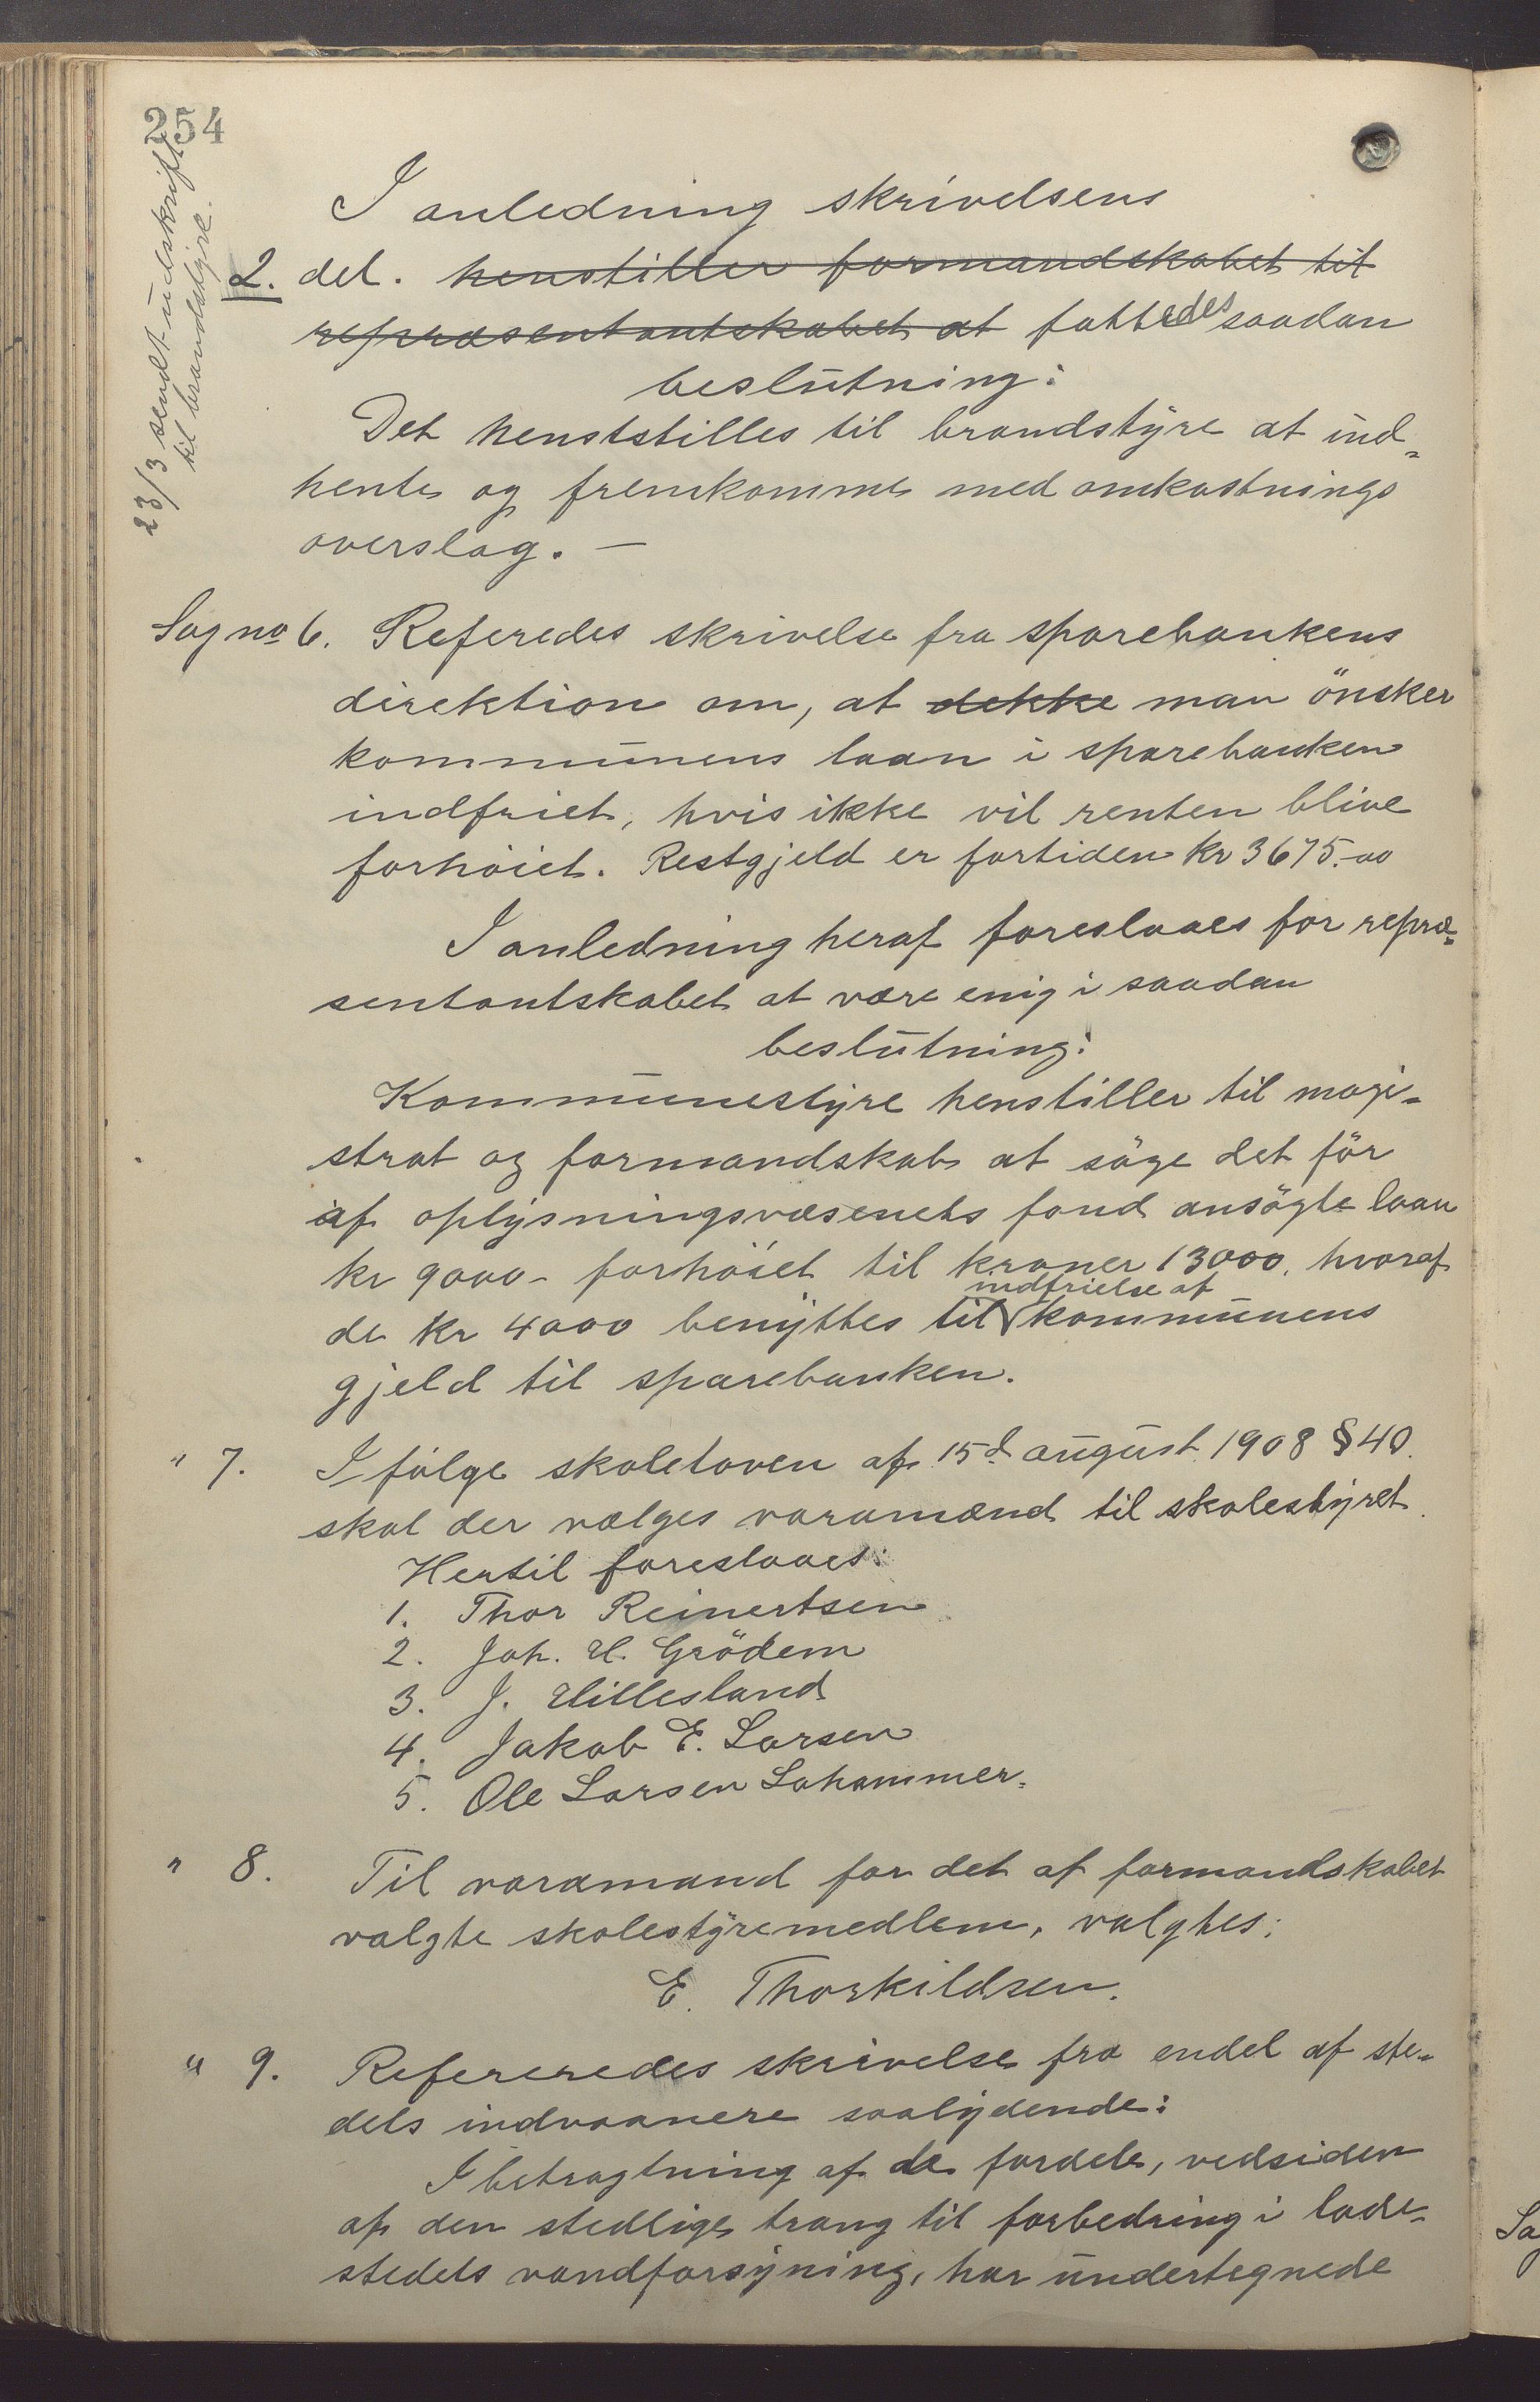 254
23/3 sendt udskrift
til brandstyre.
I anledning skrivelsens
2. del. henstiller formandskabet til
repræsentantskabet at fattedes saadan
beslutning:
Det henststilles til brandstyre at ind-
hente og fremkomme med omkostnings
overslag. —
Sag no 6. Referedes skrivelse fra sparebankens
direktion om, at dekke man önsker
kommunens laan i sparebanken
indfriet, hvis ikke vil renten blive
forhöiet. Restgjeld er fortiden kr 3675.-00
I anledning heraf foreslaaes for repræ-
sentantskabet at være enig i saadan
beslutning:
Kommunestyre henstiller til magi-
strat og formandskab at söge det för
af oplysningsvæsenets fond ansögte laan
kr 9000- forhöiet til kroner 13000, hvoraf
indfrielse af
de kr 4000 benyttes til kommunens
gjeld til sparebanken.
" 7. I fölge skoleloven af 15d august 1908 § 40.
skal der vælges varamænd til skolestyret.
Hertil foreslaaes:
1. Thor Reinertsen
2. Joh. H. Grödem
3. J. Hillesland
4. Jakob E. Larsen
5. Ole Larsen Lahammer.
" 8. Til varamand for det af formandskabet
valgte skolestyremedlem, valgtes:
E. Thorkildsen.
" 9. Refereredes skrivelse fra endel af ste-
dels indvaanere saalydende:
I betragtning af de fordele, vedsiden
af den stedlige trang til forbedring i lade-
stedets vandforsyning, har undertegnede
Sa